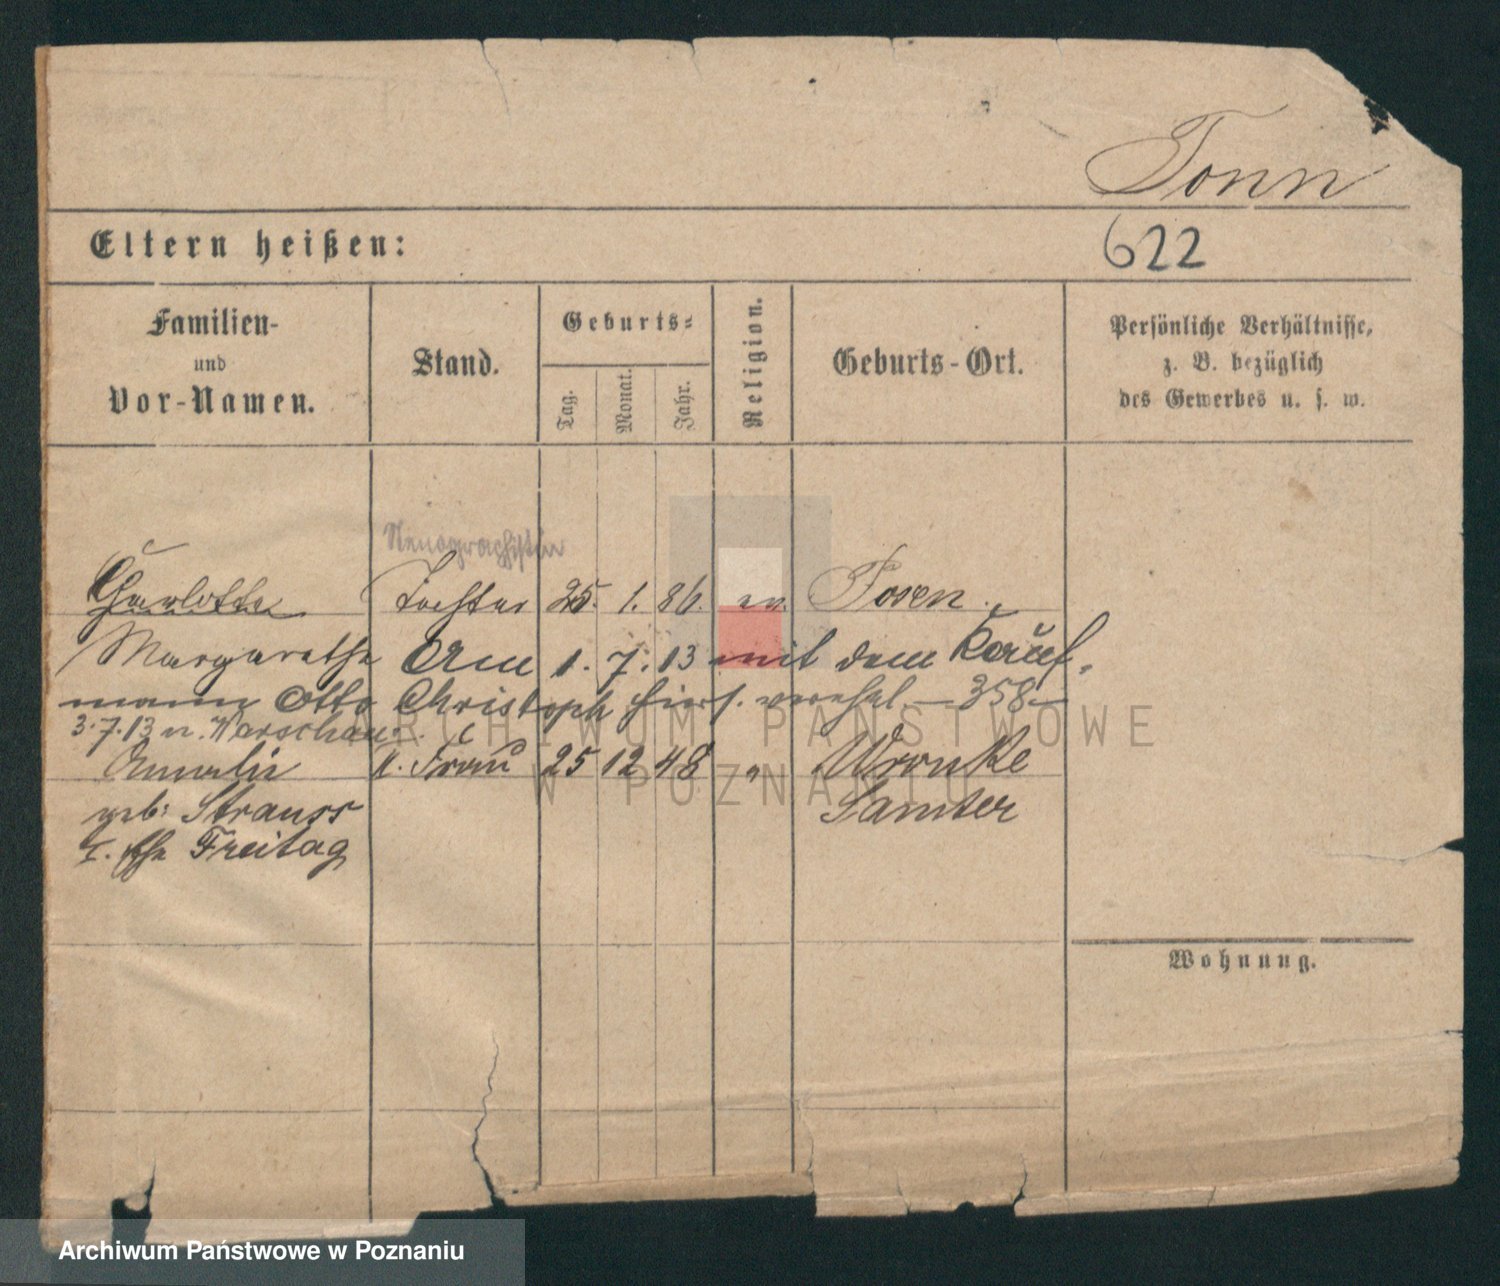 Tonn
Eltern heißen:
622
Familien-
und
Vor-Namen.
Stand.
Geburts-
Tag.
Monat.
Jahr.
Religion.
Geburts-Ort.
Persönliche Verhältnisse,
z. B. bezüglich
des Gewerbes u. s. w.
Stenographistin
Charlotte Tochter 25. 1. 86. ev. Posen.
Margarethe Am 1. 7. 13 mit dem Kauf-
mann Otto Christoph hiers. verehel. 358
3.7.13 n. Warschau.
Amalie II. Frau 25 12 48 " Wronke
geb. Strauss Samter
I. Ehe Freitag
Wohnung.
ARCHIWUM PAŃSTWOWE
W POZNANIU
Archiwum Państwowe w Poznaniu